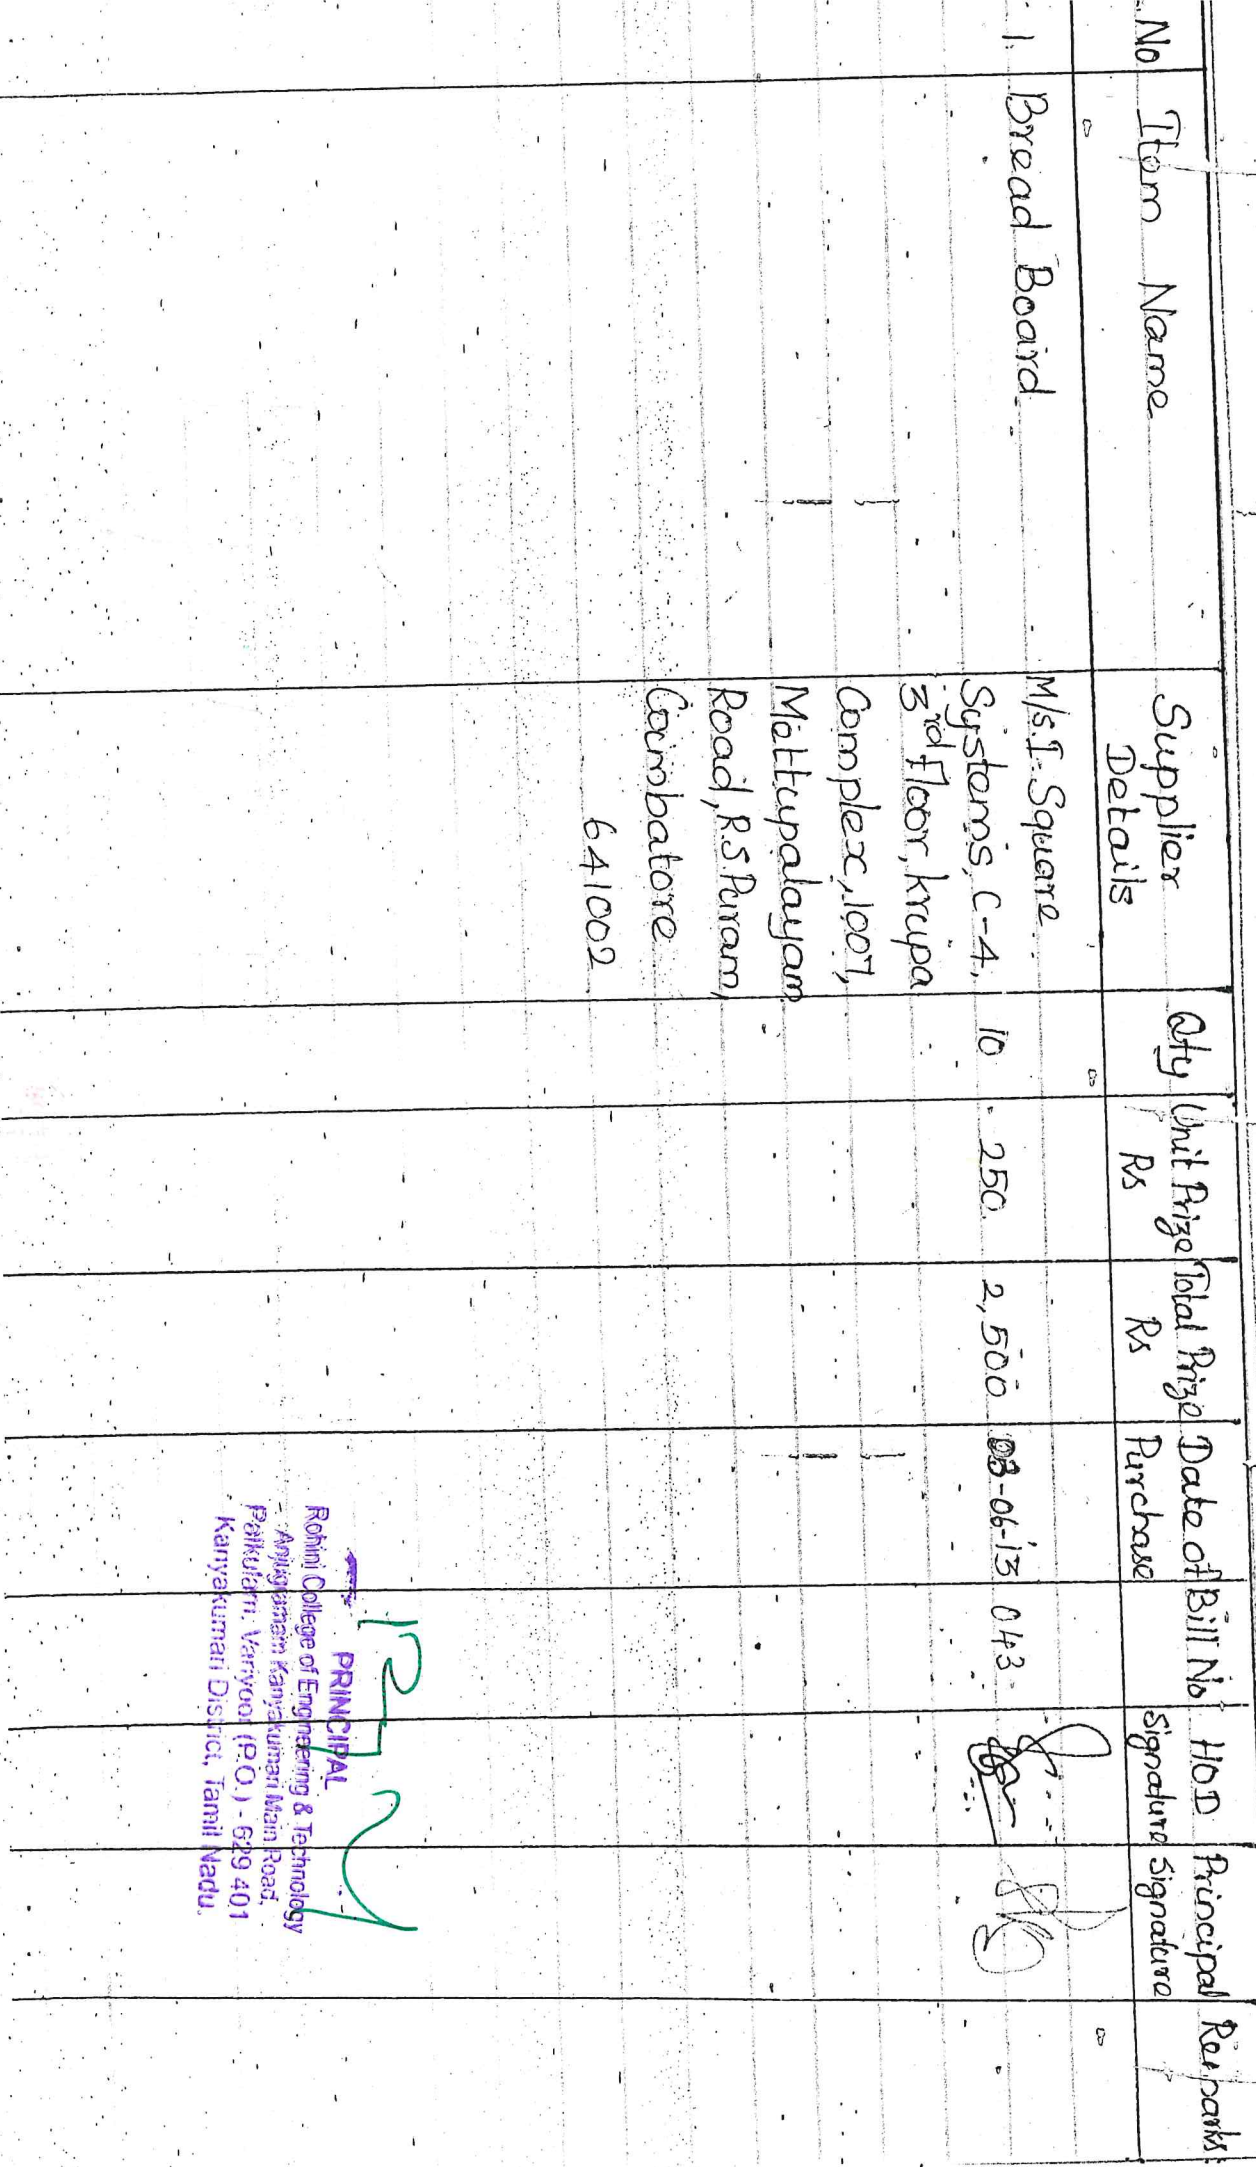 No
Item Name
Supplier
Details
Qty
Unit Prize
Rs
Total Prize
Rs
Date of
Purchase
Bill No
HOD
Signature
Principal
Signature
1.
Bread Board
M/s. I-Square
Systems, C-4,
3rd Floor, Krupa
Complex, 1007,
Mettupalayam
Road, R.S. Puram,
Coimbatore
641002
10
250
2,500
03-06-13
043
PRINCIPAL
Rohini College of Engineering & Technology
Anjugramam Kanyakumari Main Road,
Palkulam, Variyoor (P.O.) - 629 401
Kanyakumari District, Tamil Nadu.